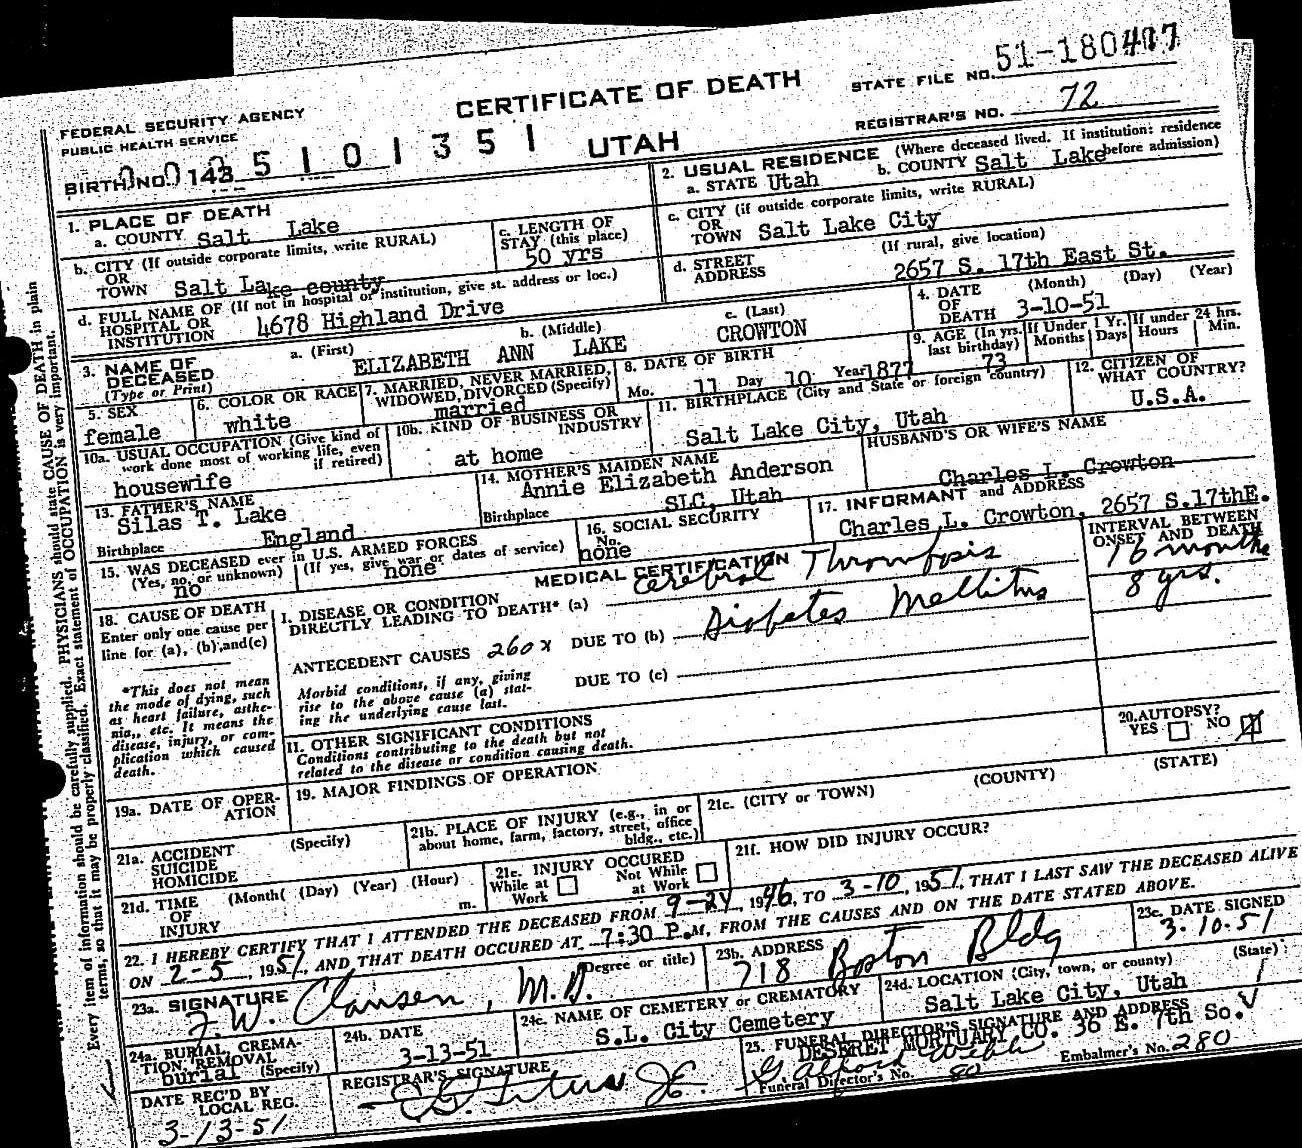 51-180477
STATE FILE NO.
CERTIFICATE OF DEATH
REGISTRAR'S NO. 72
FEDERAL SECURITY AGENCY
PUBLIC HEALTH SERVICE
UTAH
BIRTH NO. 143 5 1 0 1 3 5 1
1. PLACE OF DEATH
a. COUNTY Salt Lake
b. CITY (If outside corporate limits, write RURAL)
OR
TOWN Salt Lake county
c. LENGTH OF
STAY (this place)
50 yrs
d. FULL NAME OF (If not in hospital or institution, give st. address or loc.)
HOSPITAL OR
INSTITUTION 4678 Highland Drive
2. USUAL RESIDENCE (Where deceased lived. If institution: residence
before admission)
a. STATE Utah b. COUNTY Salt Lake
c. CITY (if outside corporate limits, write RURAL)
OR
TOWN Salt Lake City
d. STREET (If rural, give location)
ADDRESS 2657 S. 17th East St.
3. NAME OF
DECEASED
(Type or Print)
a. (First) b. (Middle) c. (Last)
ELIZABETH ANN LAKE CROWTON
4. DATE (Month) (Day) (Year)
OF
DEATH 3-10-51
5. SEX
female
6. COLOR OR RACE
white
7. MARRIED, NEVER MARRIED,
WIDOWED, DIVORCED (Specify)
married
8. DATE OF BIRTH
Mo. 11 Day 10 Year 1877
9. AGE (In yrs.
last birthday)
73
If Under 1 Yr.
Months Days
If under 24 hrs.
Hours Min.
10a. USUAL OCCUPATION (Give kind of
work done most of working life, even
if retired)
housewife
10b. KIND OF BUSINESS OR
INDUSTRY
at home
11. BIRTHPLACE (City and State or foreign country)
Salt Lake City, Utah
12. CITIZEN OF
WHAT COUNTRY?
U.S.A.
13. FATHER'S NAME
Silas T. Lake
Birthplace England
14. MOTHER'S MAIDEN NAME
Annie Elizabeth Anderson
Birthplace SLC, Utah
HUSBAND'S OR WIFE'S NAME
Charles L. Crowton
15. WAS DECEASED ever in U.S. ARMED FORCES
(Yes, no, or unknown) (If yes, give war or dates of service)
no none
16. SOCIAL SECURITY
No.
none
17. INFORMANT and ADDRESS
Charles L. Crowton, 2657 S.17thE.
MEDICAL CERTIFICATION
INTERVAL BETWEEN
ONSET AND DEATH
18. CAUSE OF DEATH
Enter only one cause per
line for (a), (b), and (c)
I. DISEASE OR CONDITION
DIRECTLY LEADING TO DEATH* (a) Cerebral Thrombosis 16 months
ANTECEDENT CAUSES 260x DUE TO (b) Diabetes Mellitus 8 yrs.
Morbid conditions, if any, giving
rise to the above cause (a) stat-
ing the underlying cause last.
DUE TO (c)
*This does not mean
the mode of dying, such
as heart failure, asthe-
nia,, etc. It means the
disease, injury, or com-
plication which caused
death.
11. OTHER SIGNIFICANT CONDITIONS
Conditions contributing to the death but not
related to the disease or condition causing death.
20. AUTOPSY?
YES NO
19a. DATE OF OPER-
ATION
19. MAJOR FINDINGS OF OPERATION
21a. ACCIDENT (Specify)
SUICIDE
HOMICIDE
21b. PLACE OF INJURY (e.g., in or
about home, farm, factory, street, office
bldg., etc.)
21c. (CITY or TOWN) (COUNTY) (STATE)
21d. TIME (Month( (Day) (Year) (Hour)
OF
INJURY m.
21e. INJURY OCCURED
While at Not While
Work at Work
21f. HOW DID INJURY OCCUR?
22. I HEREBY CERTIFY THAT I ATTENDED THE DECEASED FROM 9-24, 1946, TO 3-10, 1951, THAT I LAST SAW THE DECEASED ALIVE
ON 2-5, 1951, AND THAT DEATH OCCURED AT 7:30 P.M, FROM THE CAUSES AND ON THE DATE STATED ABOVE.
23a. SIGNATURE (Degree or title)
J. W. Clausen, M.D.
23b. ADDRESS
718 Boston Bldg
23c. DATE SIGNED
3-10-51
24a. BURIAL, CREMA-
TION, REMOVAL
burial (Specify)
24b. DATE
3-13-51
24c. NAME OF CEMETERY or CREMATORY
S.L. City Cemetery
24d. LOCATION (City, town, or county) (State)
Salt Lake City, Utah
DATE REC'D BY
LOCAL REG.
3-13-51
REGISTRAR'S SIGNATURE
25. FUNERAL DIRECTOR'S SIGNATURE AND ADDRESS
DESERET MORTUARY CO. 36 E. 7th So.
Funeral Director's No. 80
Embalmer's No. 280
Every item of information should be carefully supplied. PHYSICIANS should state CAUSE OF DEATH in plain
terms, so that it may be properly classified. Exact statement of OCCUPATION is very important.